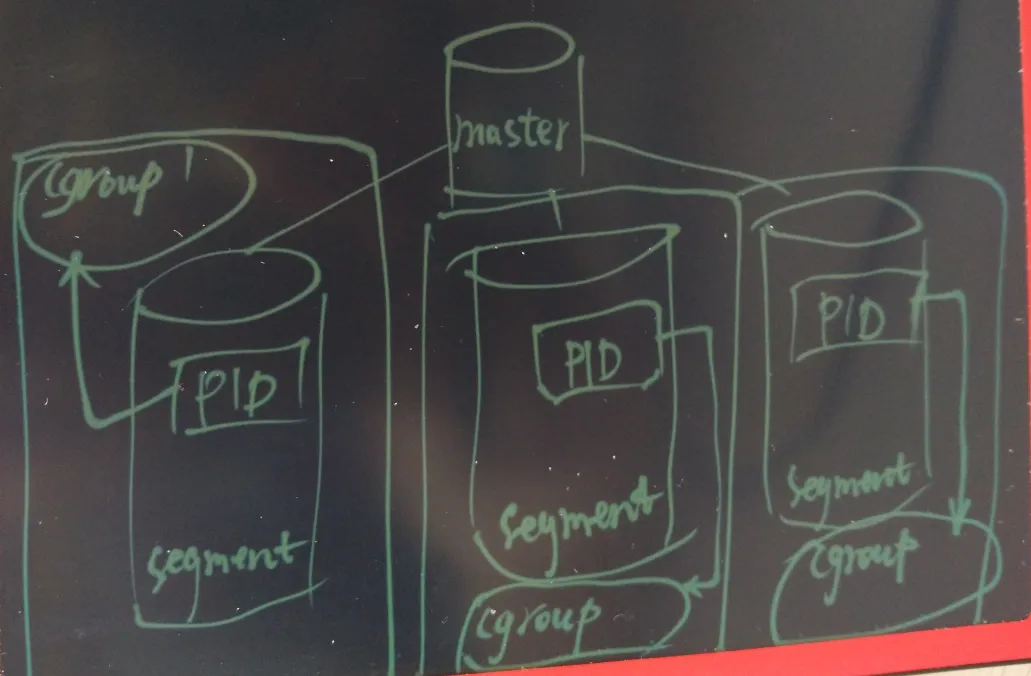 master
cgroup
PID
segment
PID
segment
cgroup
PID
segment
cgroup